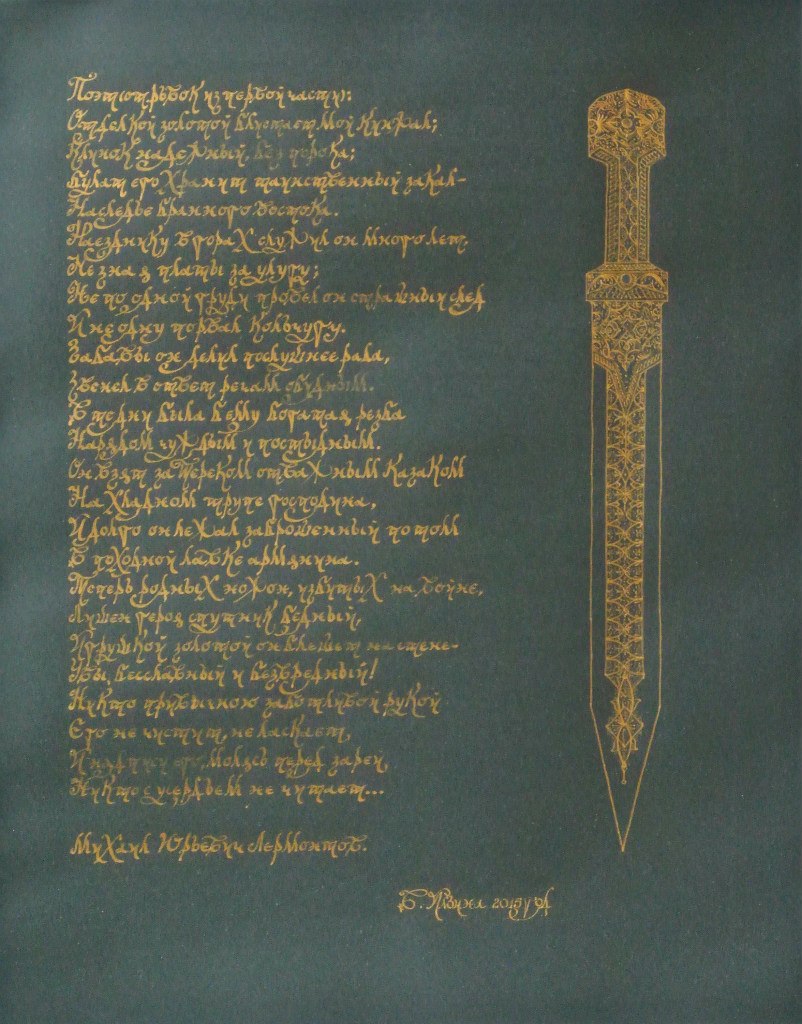 Поэт (отрывок из первой части):
Отделкой золотой блистает мой кинжал;
Клинок надежный, без порока;
Булат его хранит таинственный закал-
Наследье бранного востока.
Наезднику в горах служил он много лет,
Не зная платы за услугу;
Не по одной груди провел он страшный след
И не одну порвал кольчугу.
Забавы он делил послушнее раба,
Звенел в ответ речам обидным.
В те дни была б ему богатая резьба
Нарядом чуждым и постыдным.
Он взят за Тереком отважным казаком
На хладном трупе господина,
И долго он лежал заброшенный потом
В походной лавке армянина.
Теперь родных ножон, избитых на войне,
Лишен героя спутник бедный,
Игрушкой золотой он блещет на стене-
Увы, бесславный и безвредный!
Никто привычною заботливой рукой
Его не чистит, не ласкает,
И надписи его, молясь перед зарей,
Никто с усердьем не читает...
Михаил Юрьевич Лермонтов.
2019 год